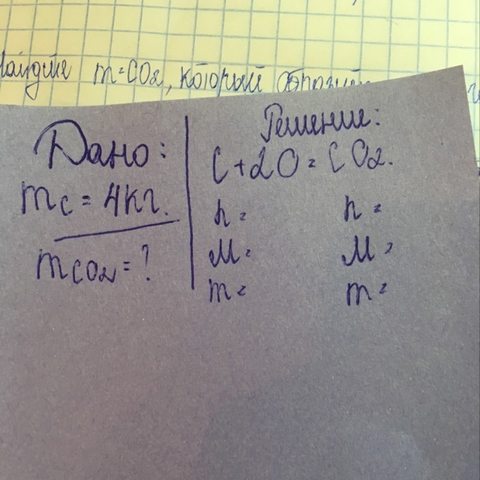 Найдите m=CO2, который
Дано:
mc = 4кг.
mco2 = ?
Решение:
C+2O = CO2.
n = n =
M = M =
m = m =